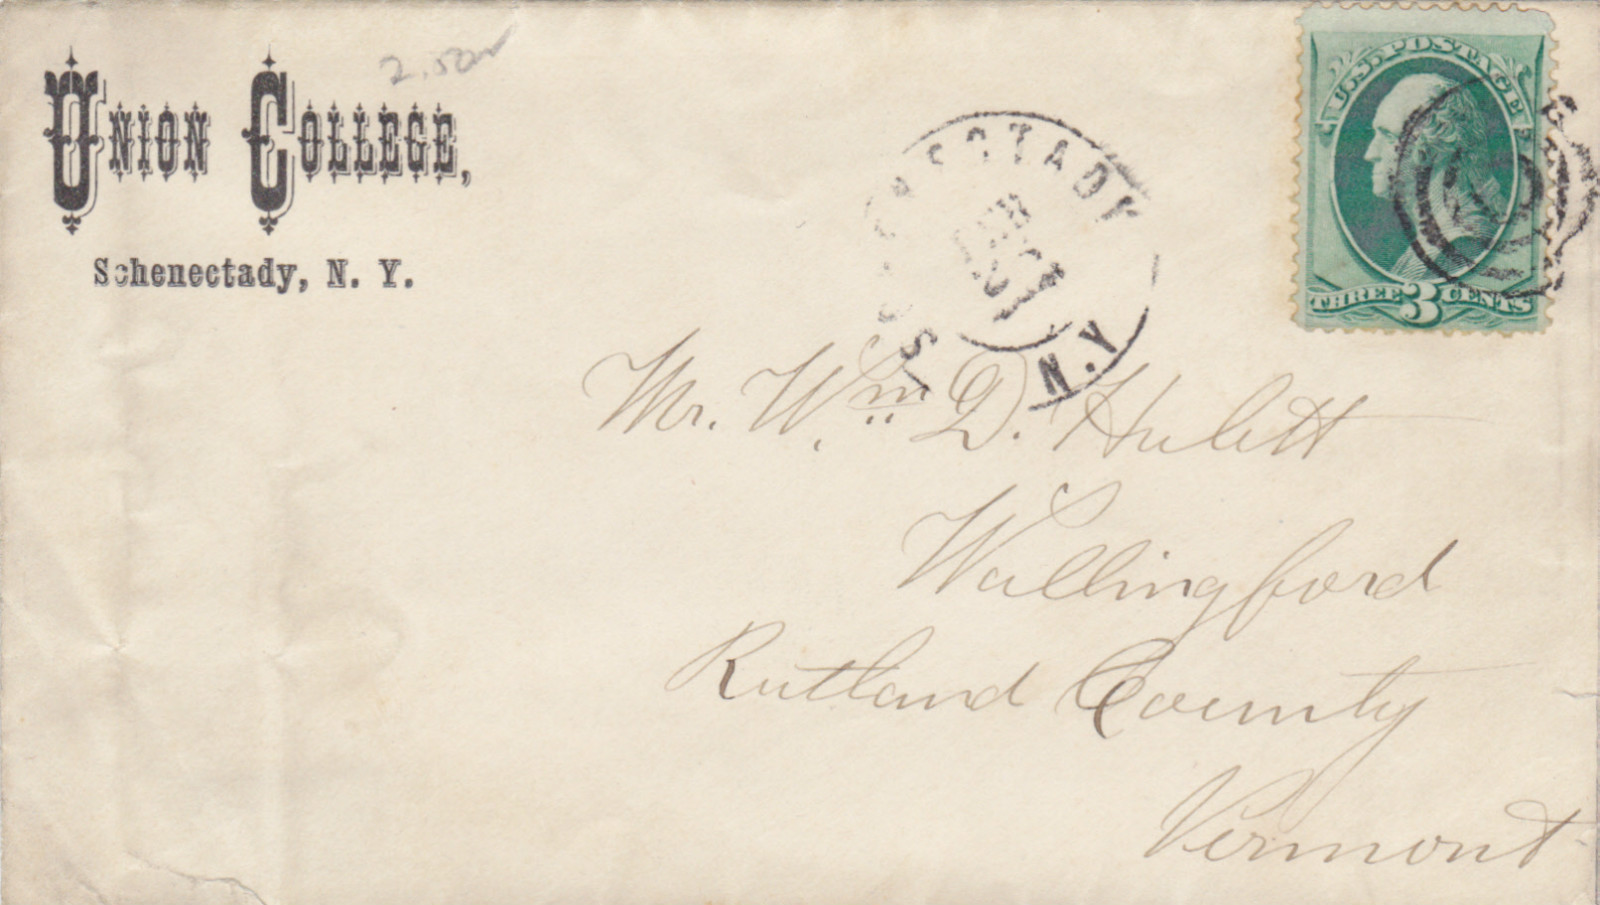 UNION COLLEGE,
Schenectady, N. Y.
2.50
SCHENECTADY
N.Y.
U.S. POSTAGE
THREE 3 CENTS
Mr. Wm. D. Hulett
Wallingford
Rutland County
Vermont